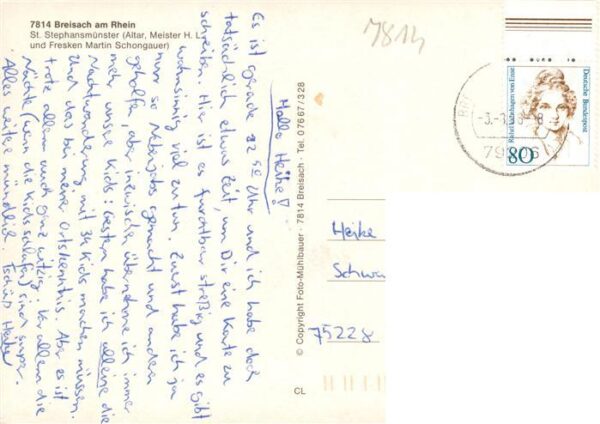 7814 Breisach am Rhein
St. Stephansmünster (Altar, Meister H. L.
und Fresken Martin Schongauer)
7814
Hallo Heike!
Es ist gerade 22 50 Uhr und ich habe doch
tatsächlich etwas Zeit, um Dir eine Karte zu
schreiben. Hier ist es furchtbar streßig und es gibt
wahnsinnig viel zu tun. Zuerst habe ich ja
nur so Nebenjobs gemacht und andern
geholfen, aber inzwischen übernehme ich immer
mehr unsre Kids: Gestern habe ich alleine die
Nachtwanderung mit 34 Kids machen müssen.
Und das bei meiner Ortskenntnis. Aber es ist
trotz allem auch ganz witzig: Vor allem die
Nächte (wenn die Kids schlafen) sind super.
Alles weitere mündlich. Tschüß
© Copyright Foto-Mühlbauer · 7814 Breisach · Tel. 07667/328
CL
Heike
Schwa
75228
Deutsche Bundespost
Rahel Varnhagen von Ense
80
79206